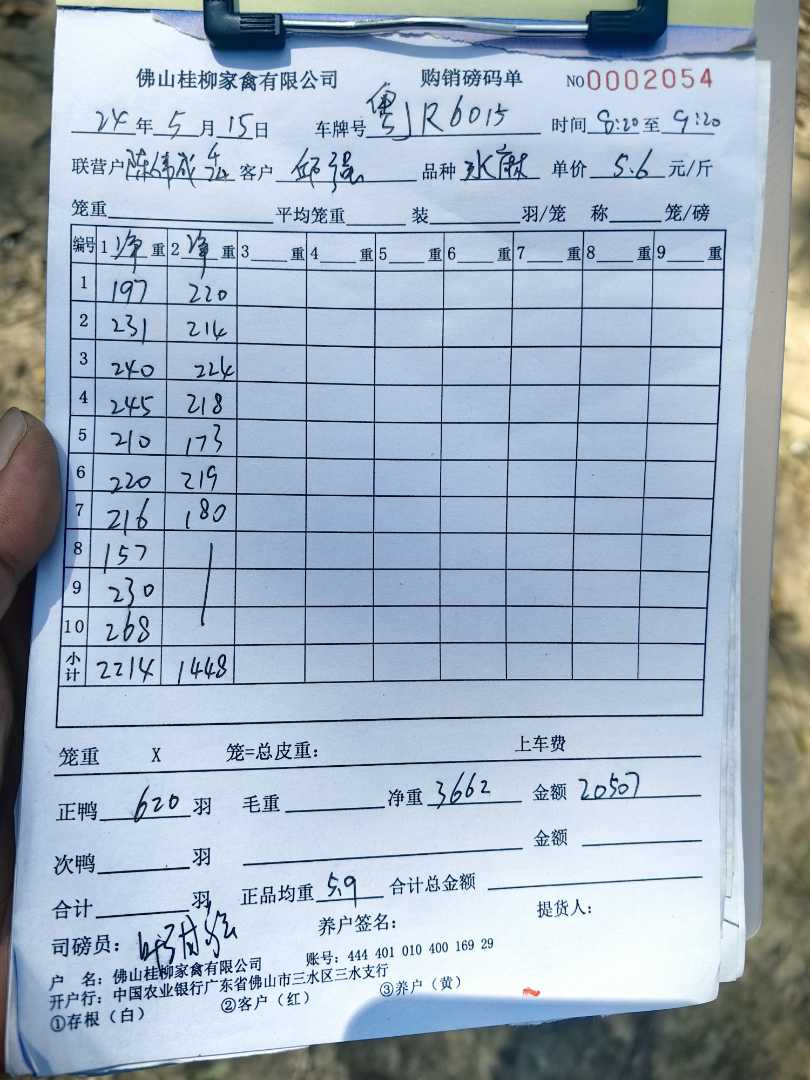 佛山桂柳家禽有限公司 购销磅码单 NO0002054
24年5月15日 车牌号粤JR6015 时间8:20至9:20
联营户陈伟成 客户邱强 品种水麻 单价5.6元/斤
笼重 平均笼重 装 羽/笼 称 笼/磅
编号 1净重 2净重 3 重 4 重 5 重 6 重 7 重 8 重 9 重
1 197 220
2 231 214
3 240 224
4 245 218
5 210 173
6 220 219
7 216 180
8 157
9 230
10 268
小计 2214 1448
笼重 X 笼=总皮重: 上车费
正鸭620羽 毛重 净重3662 金额20507
次鸭 羽 金额
合计 羽 正品均重5.9 合计总金额
司磅员: 养户签名: 提货人:
户 名: 佛山桂柳家禽有限公司 账号: 444 401 010 400 169 29
开户行: 中国农业银行广东省佛山市三水区三水支行
①存根(白) ②客户(红) ③养户(黄)